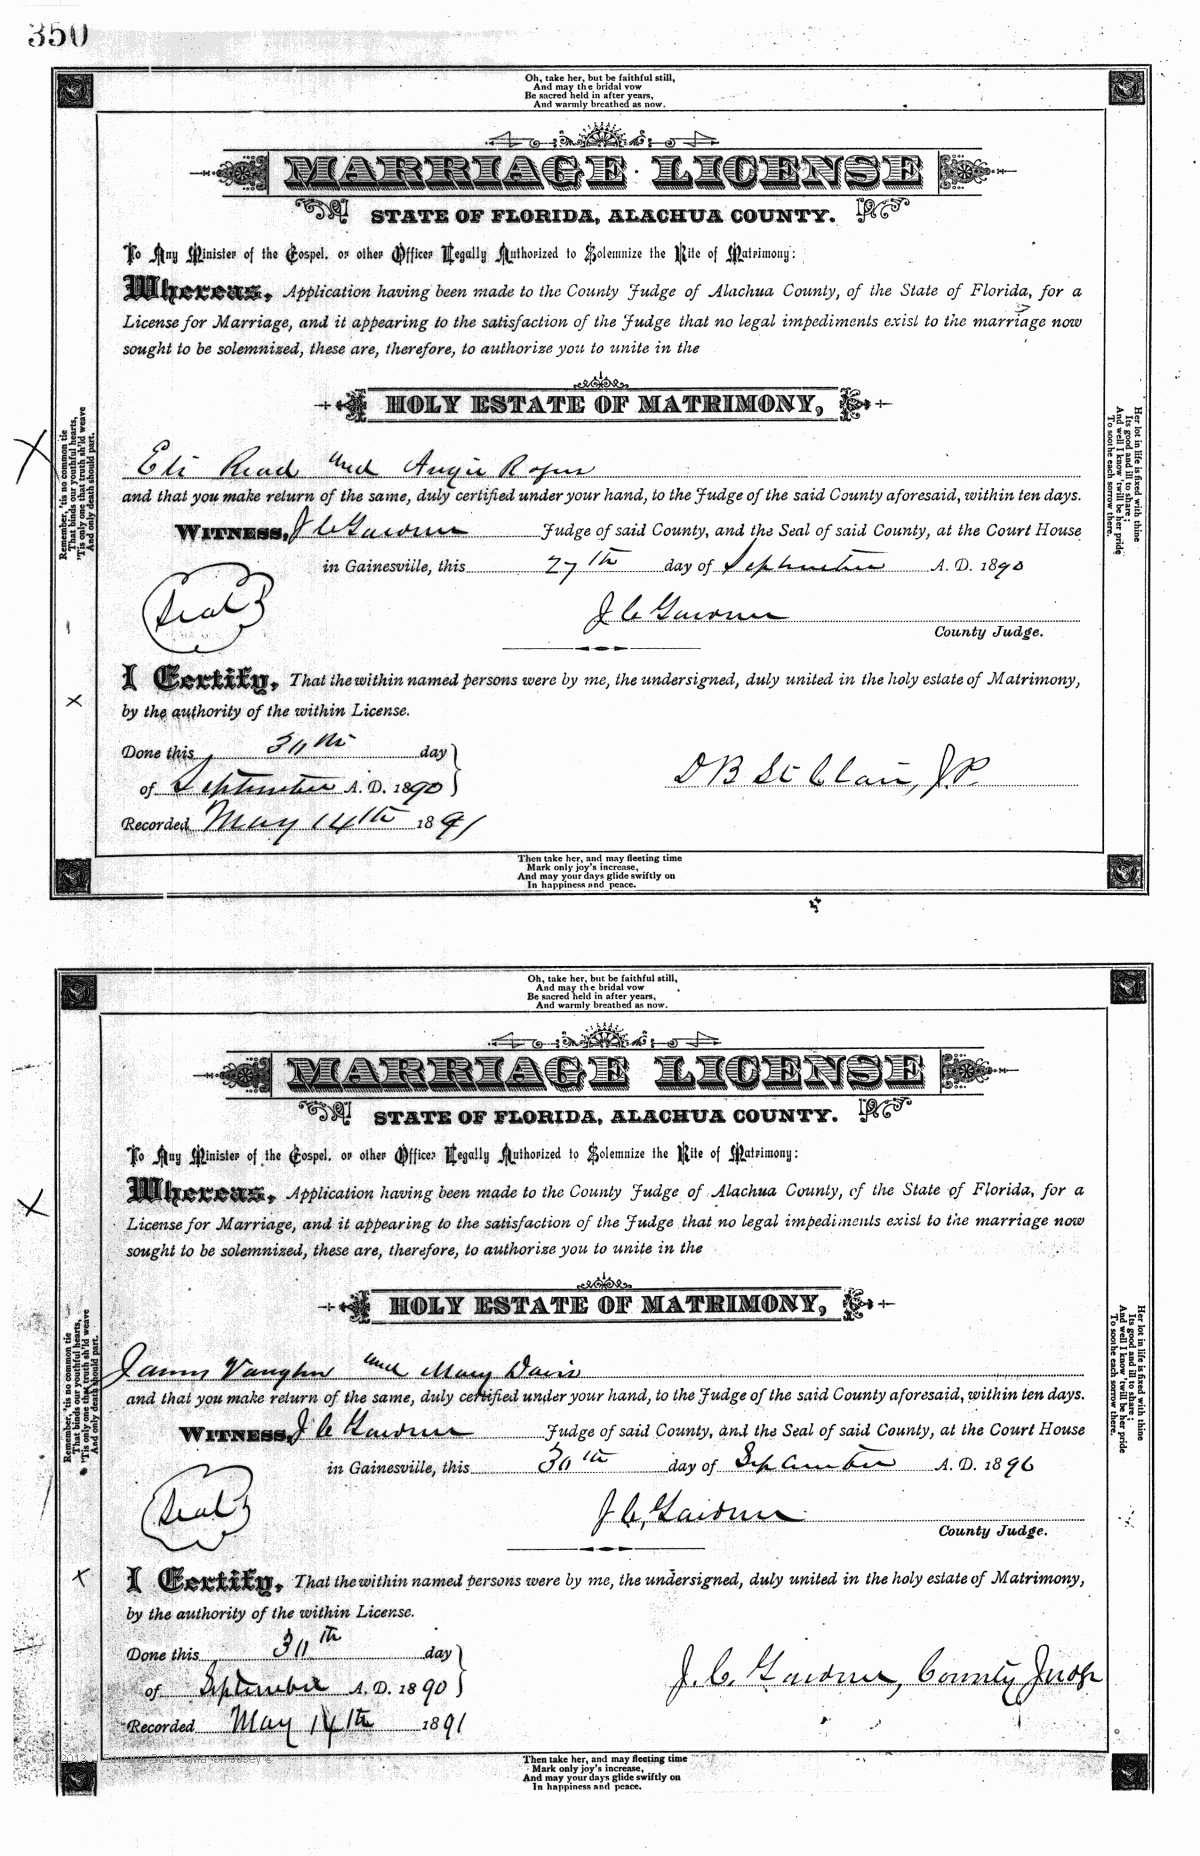 350
Oh, take her, but be faithful still,
And may the bridal vow
Be sacred held in after years,
And warmly breathed as now.
MARRIAGE LICENSE
STATE OF FLORIDA, ALACHUA COUNTY.
To Any Minister of the Gospel, or other Officer Legally Authorized to Solemnize the Rite of Matrimony:
Whereas, Application having been made to the County Judge of Alachua County, of the State of Florida, for a
License for Marriage, and it appearing to the satisfaction of the Judge that no legal impediments exist to the marriage now
sought to be solemnized, these are, therefore, to authorize you to unite in the
HOLY ESTATE OF MATRIMONY,
Remember, 'tis no common tie
That binds our youthful hearts,
'Tis only one that truth sh'ld weave
And only death should part.
Her lot in life is fixed with thine
Its good and ill to share;
And well I know 'twill be her pride
To soothe each sorrow there.
X
Eli Read and Angie Roger
and that you make return of the same, duly certified under your hand, to the Judge of the said County aforesaid, within ten days.
WITNESS, J C Gardner Judge of said County, and the Seal of said County, at the Court House
in Gainesville, this 27th day of September A. D. 1890
Seal
J C Gardner
County Judge.
I Certify, That the within named persons were by me, the undersigned, duly united in the holy estate of Matrimony,
x
by the authority of the within License.
Done this 30th day
of September A. D. 1890
D B St Clair, J.P.
Recorded May 14th 1891
Then take her, and may fleeting time
Mark only joy's increase,
And may your days glide swiftly on
In happiness and peace.
Oh, take her, but be faithful still,
And may the bridal vow
Be sacred held in after years,
And warmly breathed as now.
MARRIAGE LICENSE
STATE OF FLORIDA, ALACHUA COUNTY.
To Any Minister of the Gospel, or other Officer Legally Authorized to Solemnize the Rite of Matrimony:
Whereas, Application having been made to the County Judge of Alachua County, of the State of Florida, for a
X
License for Marriage, and it appearing to the satisfaction of the Judge that no legal impediments exist to the marriage now
sought to be solemnized, these are, therefore, to authorize you to unite in the
HOLY ESTATE OF MATRIMONY,
Remember, 'tis no common tie
That binds our youthful hearts,
'Tis only one that truth sh'ld weave
And only death should part.
Her lot in life is fixed with thine
Its good and ill to share;
And well I know 'twill be her pride
To soothe each sorrow there.
James Vaughn and Mary Davis
and that you make return of the same, duly certified under your hand, to the Judge of the said County aforesaid, within ten days.
WITNESS, J C Gardner Judge of said County, and the Seal of said County, at the Court House
in Gainesville, this 30th day of September A. D. 1890
Seal
J C, Gardner
County Judge.
x
I Certify, That the within named persons were by me, the undersigned, duly united in the holy estate of Matrimony,
by the authority of the within License.
Done this 30th day
of September A. D. 1890
J. C. Gardner, County Judge
Recorded May 14th 1891
Then take her, and may fleeting time
Mark only joy's increase,
And may your days glide swiftly on
In happiness and peace.